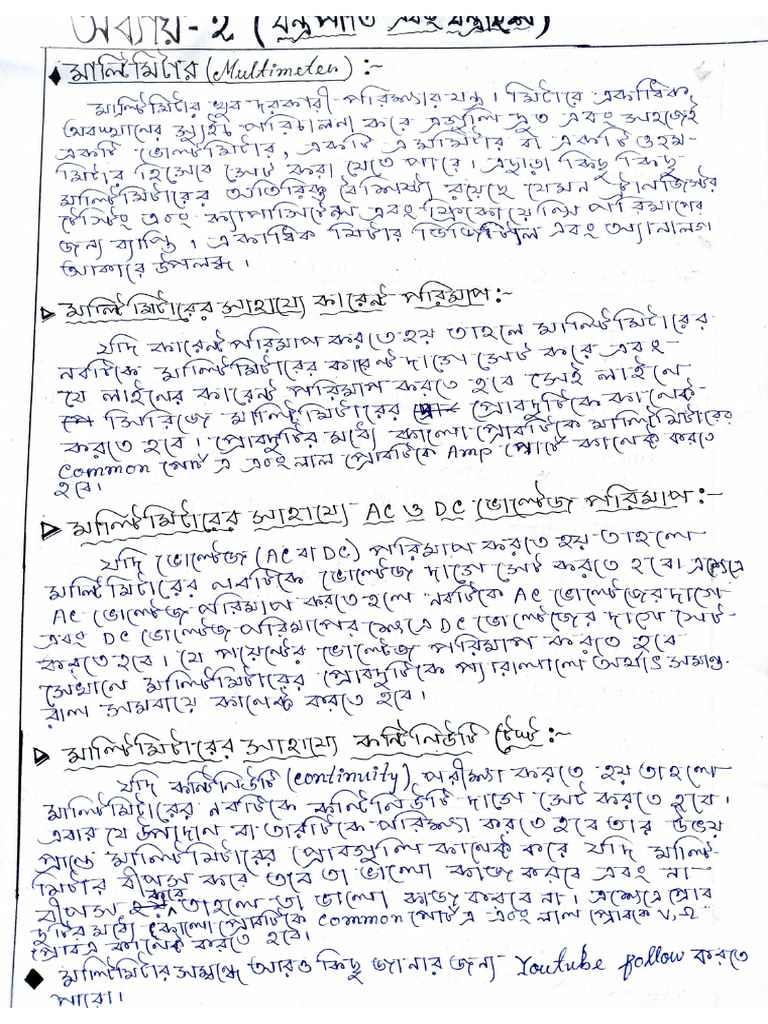 অধ্যায়-২ (যন্ত্রপাতি এবং যন্ত্রাংশ)
মাল্টিমিটার (Multimeter) :-
মাল্টিমিটার খুব দরকারী পরিক্ষার যন্ত্র। মিটারে একাধিক
অবস্থানের স্যুইচ পরিচালনা করে এগুলি দ্রুত এবং সহজেই
একটি ভোল্টমিটার, একটি এমমিটার বা একটি ওহম-
মিটার হিসেবে সেট করা যেতে পারে। এছাড়া কিছু কিছু
মাল্টিমিটারের অতিরিক্ত বৈশিষ্ট্য রয়েছে যেমন ট্রানজিস্টর
টেস্টিং এবং ক্যাপাসিটেন্স এবং ফ্রিকোয়েন্সি পরিমাপের
জন্য ব্যাপ্তি। একাধিক মিটার ডিজিটাল এবং অ্যানালগ
আকারে উপলব্ধ।
মাল্টিমিটারের সাহায্যে কারেন্ট পরিমাপ:-
যদি কারেন্ট পরিমাপ করতে হয় তাহলে মাল্টিমিটারের
নবটিকে মাল্টিমিটারের কারেন্ট দাগে সেট করে এবং
যে লাইনের কারেন্ট পরিমাপ করতে হবে সেই লাইনে
সিরিজে মাল্টিমিটারের প্রোবদুটিকে কানেক্ট-
করতে হবে। প্রোবদুটির মধ্যে কালো প্রোবটিকে মাল্টিমিটারের
Common পোর্ট এ এবং লাল প্রোবটিকে Amp পোর্টে কানেক্ট করতে
হবে।
মাল্টিমিটারের সাহায্যে AC ও DC ভোল্টেজ পরিমাপ:-
যদি ভোল্টেজ (AC বা DC) পরিমাপ করতে হয় তাহলে
মাল্টিমিটারের নবটিকে ভোল্টেজ দাগে সেট করতে হবে। এক্ষেত্রে
AC ভোল্টেজ পরিমাপ করতে হলে নবটিকে AC ভোল্টেজের দাগে
এবং DC ভোল্টেজ পরিমাপের ক্ষেত্রে DC ভোল্টেজের দাগে সেট-
করতে হবে। যে পয়েন্টের ভোল্টেজ পরিমাপ করতে হবে
সেখানে মাল্টিমিটারের প্রোবদুটিকে প্যারালালে অর্থাৎ সমান্ত-
রাল সমবায়ে কানেক্ট করতে হবে।
মাল্টিমিটারের সাহায্যে কন্টিনিউটি টেস্ট:-
যদি কন্টিনিউটি (continuity) পরীক্ষা করতে হয় তাহলে
মাল্টিমিটারের নবটিকে কন্টিনিউটি দাগে সেট করতে হবে।
এবার যে উপাদান বা তারটিকে পরিক্ষা করতে হবে তার উভয়
প্রান্তে মাল্টিমিটারের প্রোবগুলি কানেক্ট করে যদি মাল্টি-
মিটার বীপস করে তবে তা ভালো কাজ করবে এবং না
বীপস করে তাহলে তা ভালো কাজ করবে না। এক্ষেত্রে প্রোব
দুটির মধ্যে কালো প্রোবটিকে common পোর্ট এ এবং লাল প্রোবকে V,Ω
প্রোবএ কানেক্ট করতে হবে।
মাল্টিমিটার সম্বন্ধে আরও কিছু জানার জন্য Youtube follow করতে
পারো।